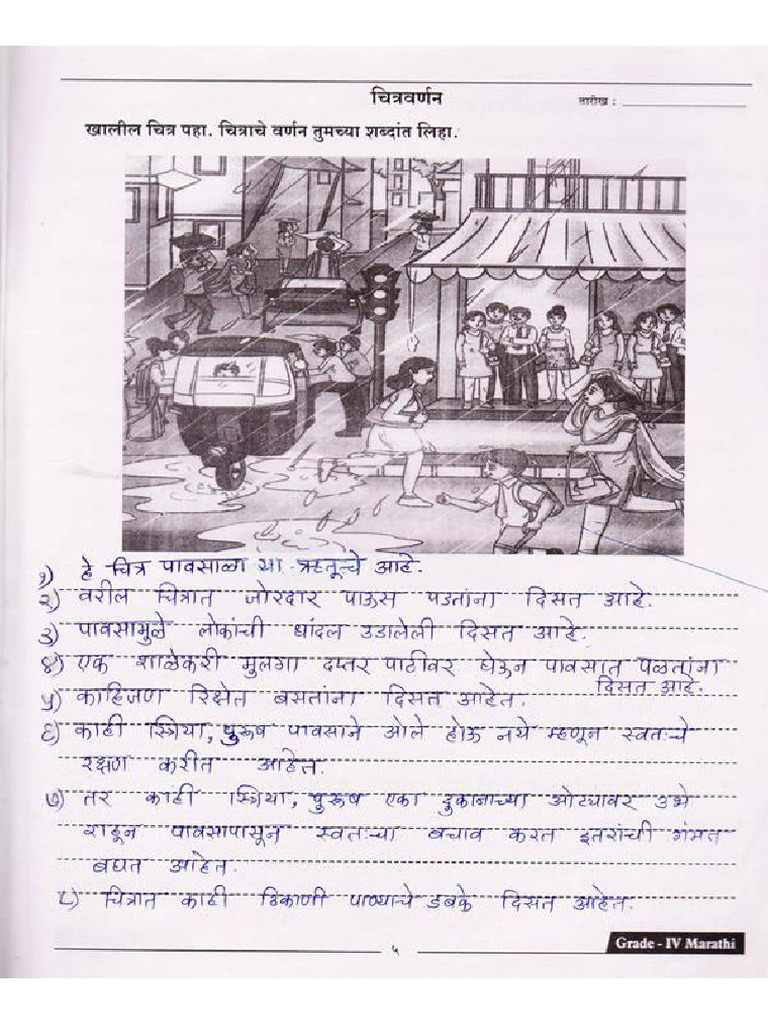 चित्रवर्णन
तारीख :
खालील चित्र पहा. चित्राचे वर्णन तुमच्या शब्दांत लिहा.
१) हे चित्र पावसाळा या ऋतूचे आहे.
२) वरील चित्रात जोरदार पाऊस पडतांना दिसत आहे.
३) पावसामुळे लोकांची धांदल उडालेली दिसत आहे.
४) एक शाळेकरी मुलगा दप्तर पाठीवर घेऊन पावसात पळतांना
दिसत आहे.
५) काहिजण रिक्षेत बसतांना दिसत आहेत.
६) काही स्त्रिया, पुरुष पावसाने ओले होऊ नये म्हणून स्वतःचे
रक्षण करीत आहेत.
७) तर काही स्त्रिया, पुरुष एका दुकानाच्या ओट्यावर उभे
राहून पावसापासून स्वतःचा बचाव करत इतरांची गंमत
बघत आहेत.
८) चित्रात काही ठिकाणी पाण्याचे डबके दिसत आहेत.
५
Grade - IV Marathi